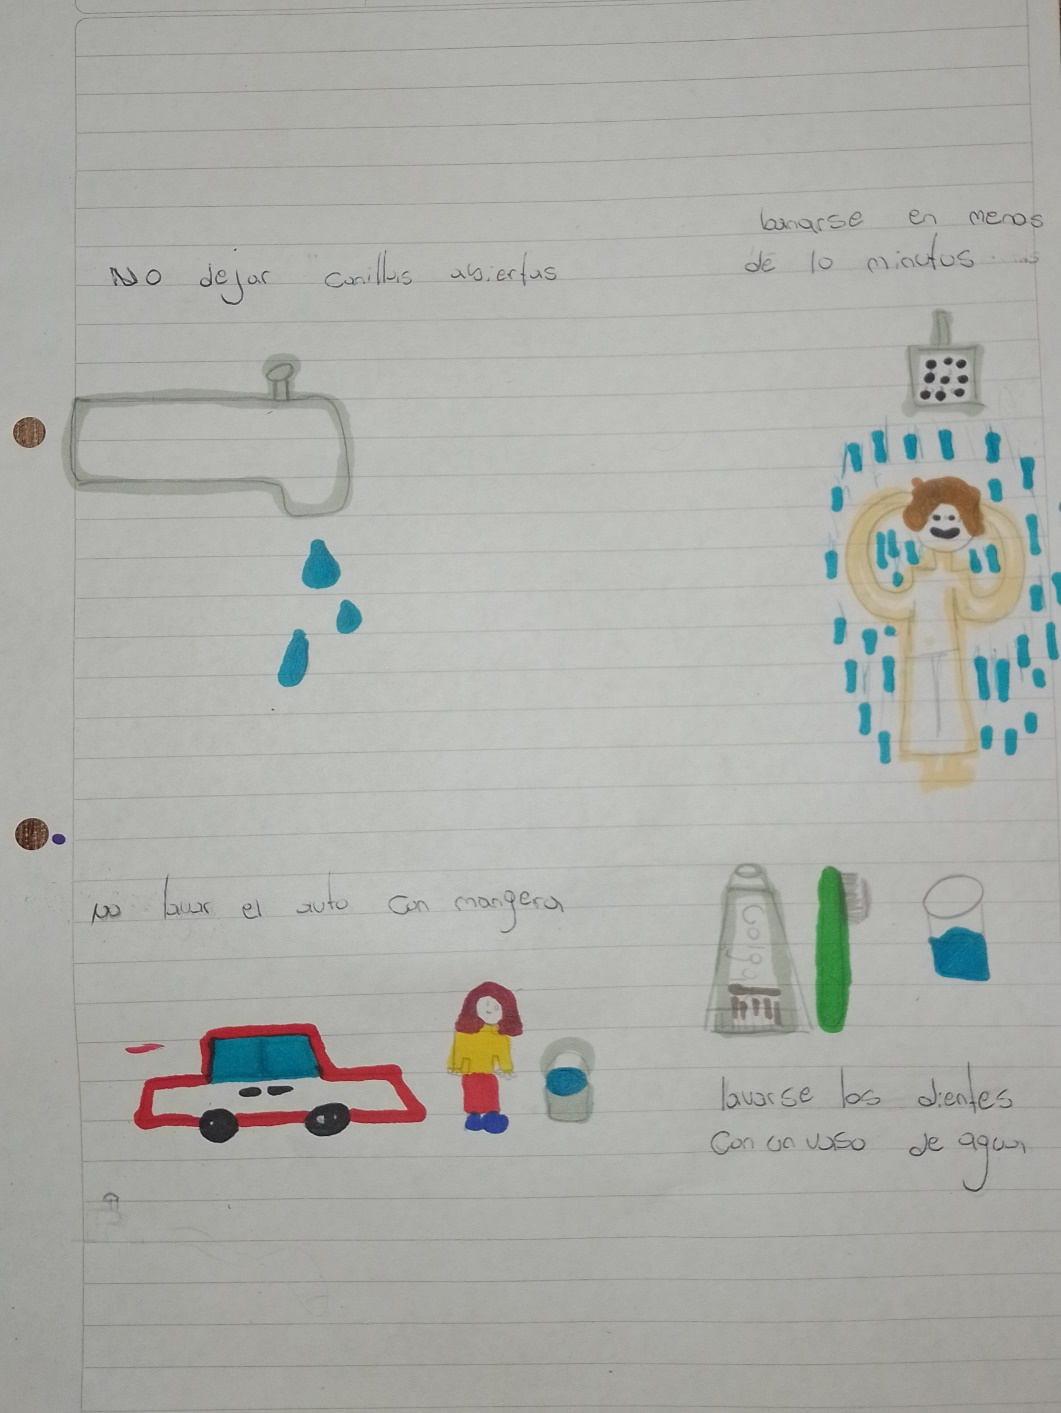 No dejar canillas abiertas
banarse en menos
de 10 minutos
No lavar el auto con mangera
Colga
lavarse los dientes
con un vaso de agua